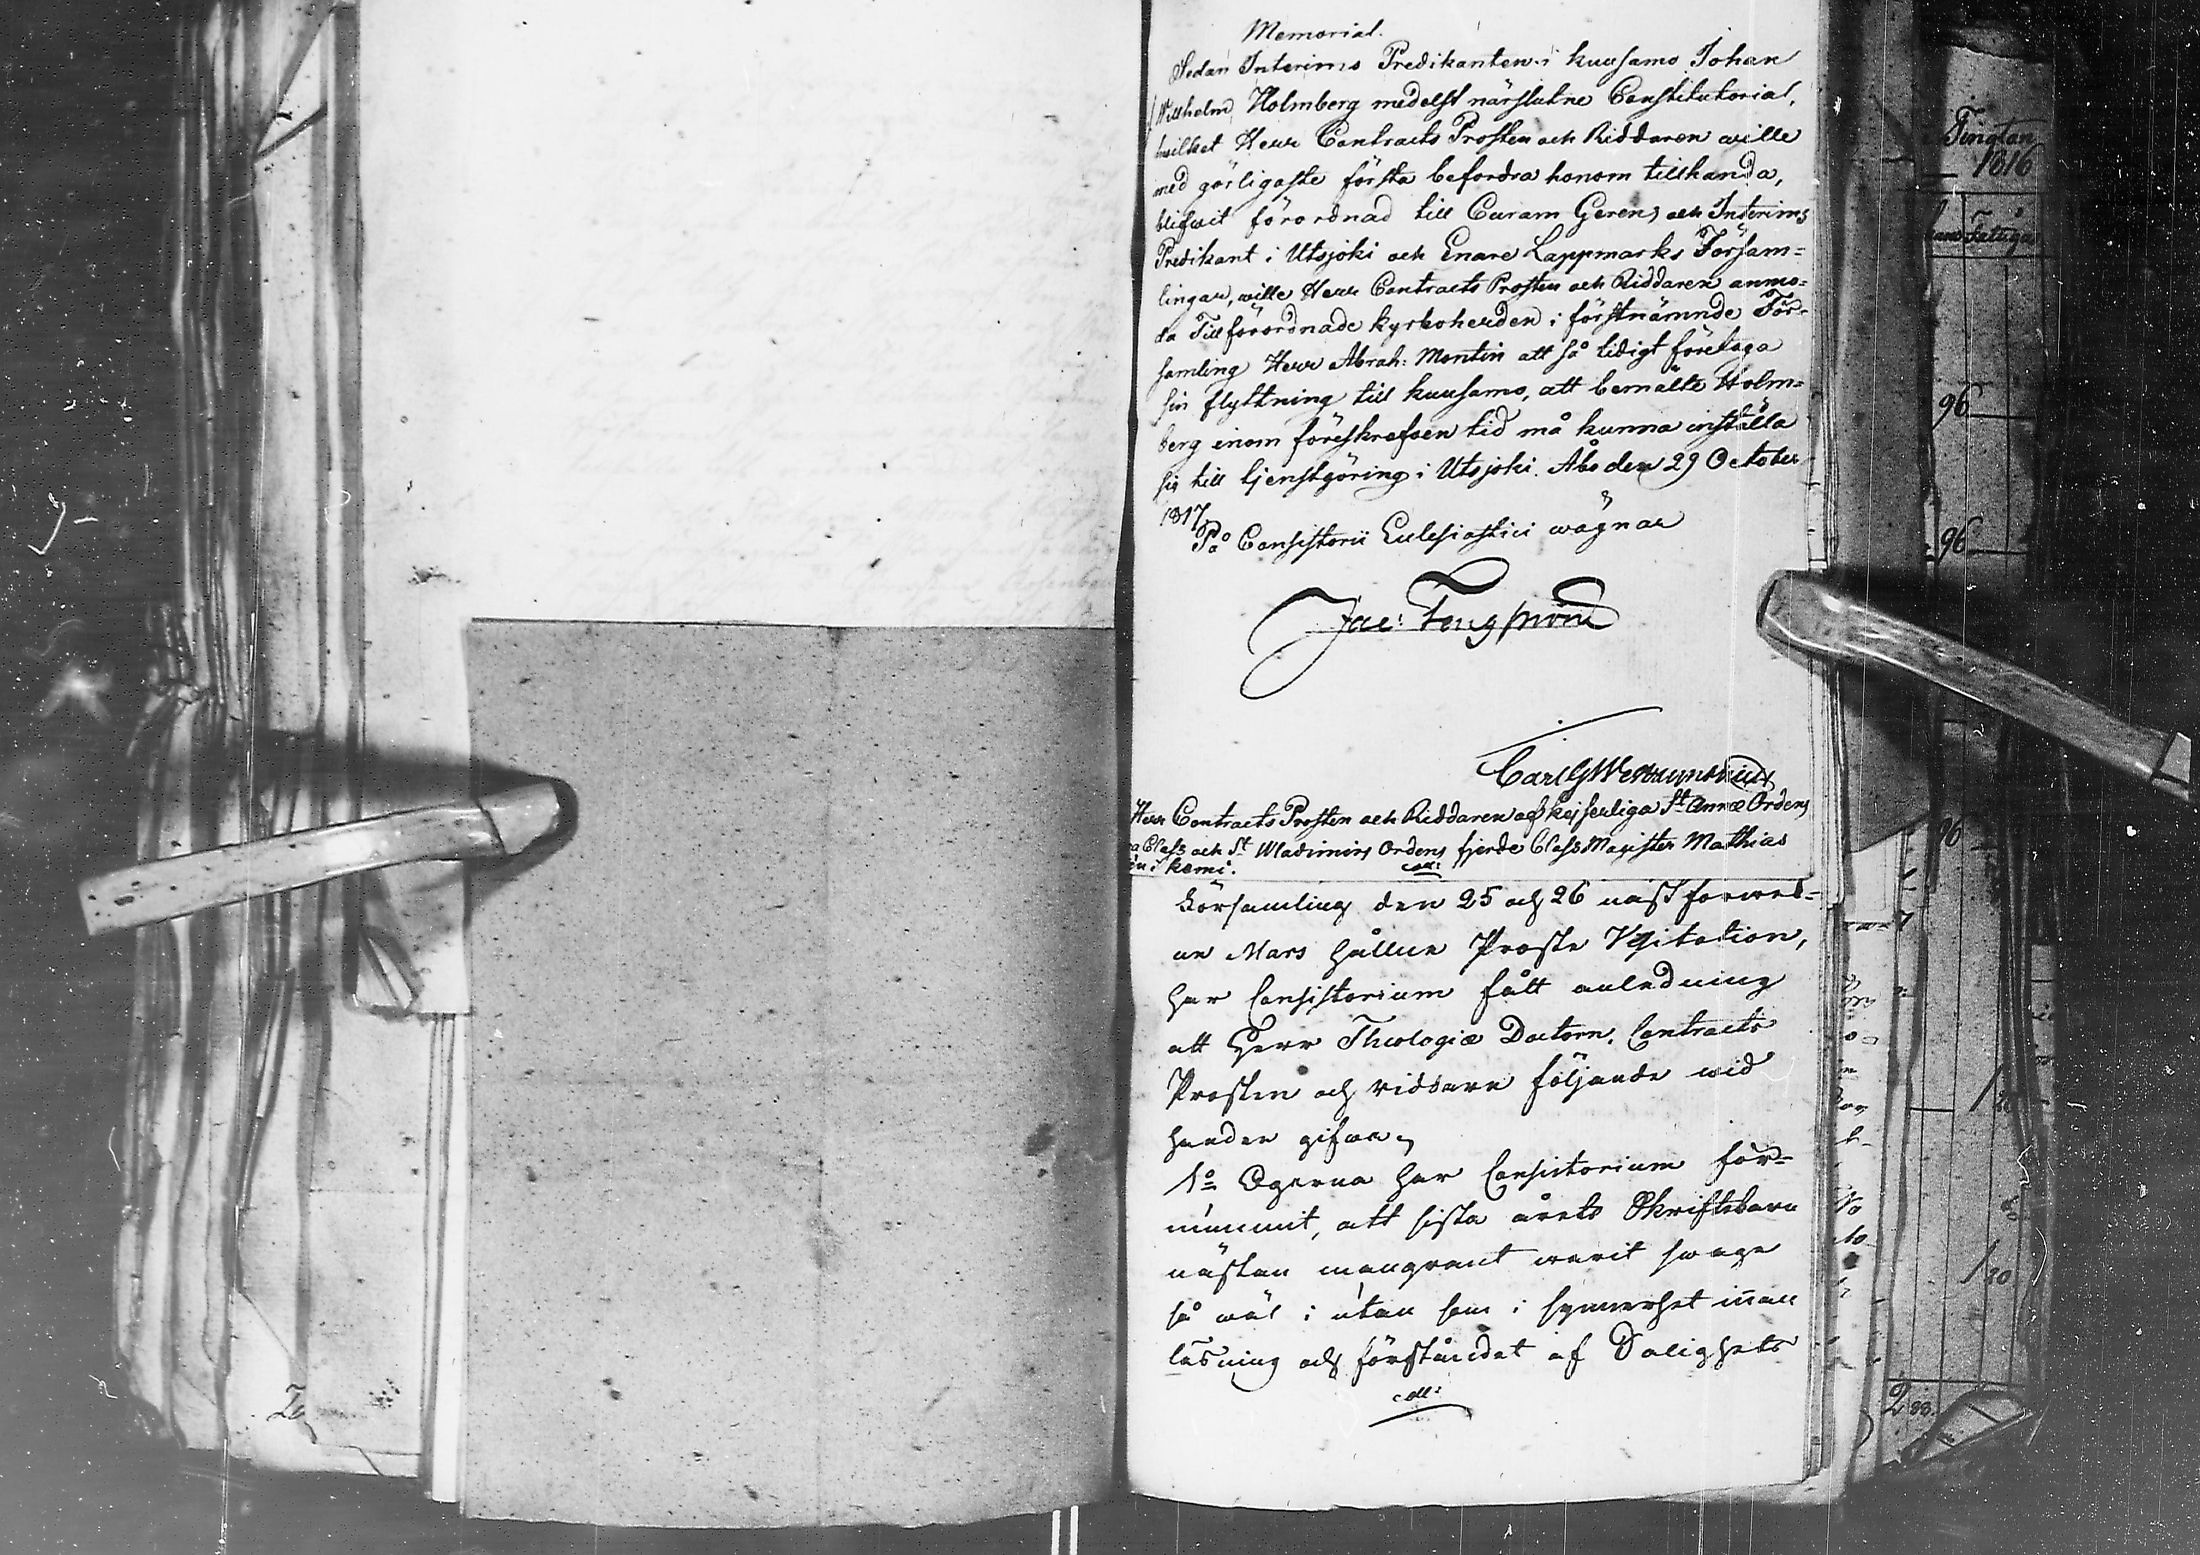 Memorial.
Sedan Interims Predikanten i Kuusamo Johan
Willhelm Holmberg medelst närslutne Constitutorial,
hvilket Herr Contracts Prosten och Riddaren wille
med görligaste första befordra honom tillhanda,
blifwit förordnad till Curam Gerens och Interims
Predikant i Utsjoki och Enare Lappmarks Församlingar
lingar, wille Herr Contracts Prosten och Riddaren anmo=
da Tillförordnade Kyrkoherden i förstnämnde För=
samling Herr Abrah: Montin att så tidigt företaga
sin flyttning till Kuusamo, att bemälte Holm=
berg inom föreskrefwen tid må kunna inställa
sig till tjenstgöring i Utsjoki. Åbo den 29 October
1817.
På Consistorii Eclesiastici wägnar
Jac: Tengström
Carl G
Herr Contracts Prosten och Riddaren af Kejserliga St Annæ Ordens
ra Class och St Wladimirs Ordens fjerde Class Magister Mathias
i Kemi.
Församling den 25 och 26 nästförwek=
ne Mars hållne Prosta Visitation,
har Consistorium fått anledning
att Herr Theologiæ Doctorn, Contracts
Prosten och riddare följande wid
handen gifwa,
1o Ogerna har Consistorium för=
nummit, att sista årets Skriftebarn
nästan mangrant warit swage
så wäl i utan som i synnerhet innan
läsning och förståndet af Salighets
Tingtan
1816
96
96
96
1
1 30
2 88.